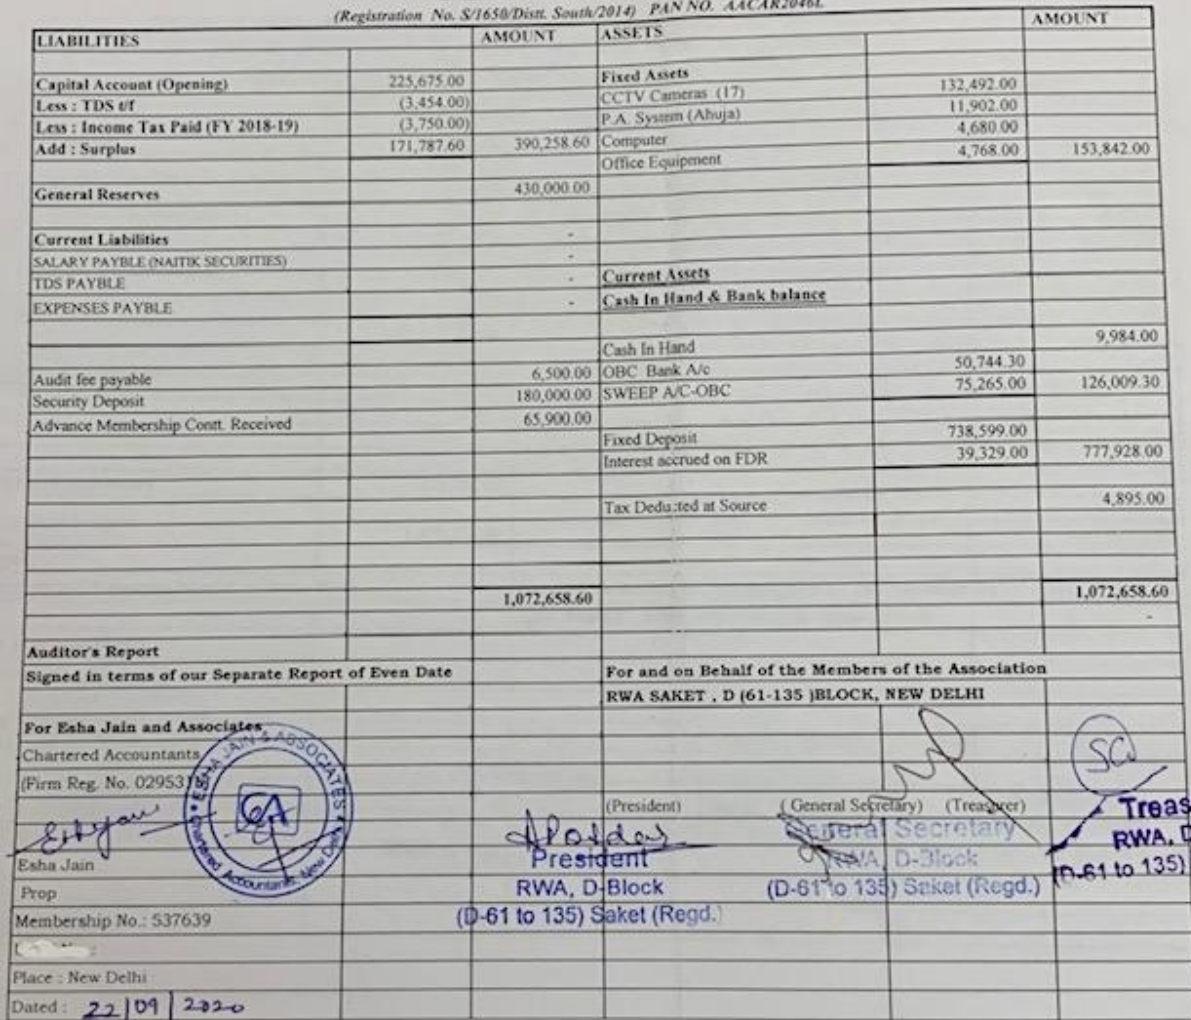 (Registration No. S/1650/Distt. South/2014) PAN NO. AACAR2046L
LIABILITIES AMOUNT ASSETS AMOUNT
Capital Account (Opening) 225,675.00 Fixed Assets
Less : TDS t/f (3,454.00) CCTV Cameras (17) 132,492.00
Less : Income Tax Paid (FY 2018-19) (3,750.00) P.A. System (Ahuja) 11,902.00
Add : Surplus 171,787.60 390,258.60 Computer 4,680.00
Office Equipment 4,768.00 153,842.00
General Reserves 430,000.00
Current Liabilities -
SALARY PAYBLE (NAITIK SECURITIES) -
TDS PAYBLE - Current Assets
EXPENSES PAYBLE - Cash In Hand & Bank balance
Cash In Hand 9,984.00
Audit fee payable 6,500.00 OBC Bank A/c 50,744.30
Security Deposit 180,000.00 SWEEP A/C-OBC 75,265.00 126,009.30
Advance Membership Contt. Received 65,900.00
Fixed Deposit 738,599.00
Interest accrued on FDR 39,329.00 777,928.00
Tax Deducted at Source 4,895.00
1,072,658.60 1,072,658.60
-
Auditor's Report
Signed in terms of our Separate Report of Even Date For and on Behalf of the Members of the Association
RWA SAKET , D (61-135 )BLOCK, NEW DELHI
For Esha Jain and Associates
Chartered Accountants
(Firm Reg. No. 02953
ESHA JAIN & ASSOCIATES
CA
Chartered Accountants, New Delhi
(President) ( General Secretary) (Treasurer)
Esha Jain
Prop
Membership No.: 537639
Place : New Delhi
Dated : 22/09/2020
President
RWA, D-Block
(D-61 to 135) Saket (Regd.)
General Secretary
RWA, D-Block
(D-61 to 135) Saket (Regd.)
SC
Treas
RWA, D
(D-61 to 135)